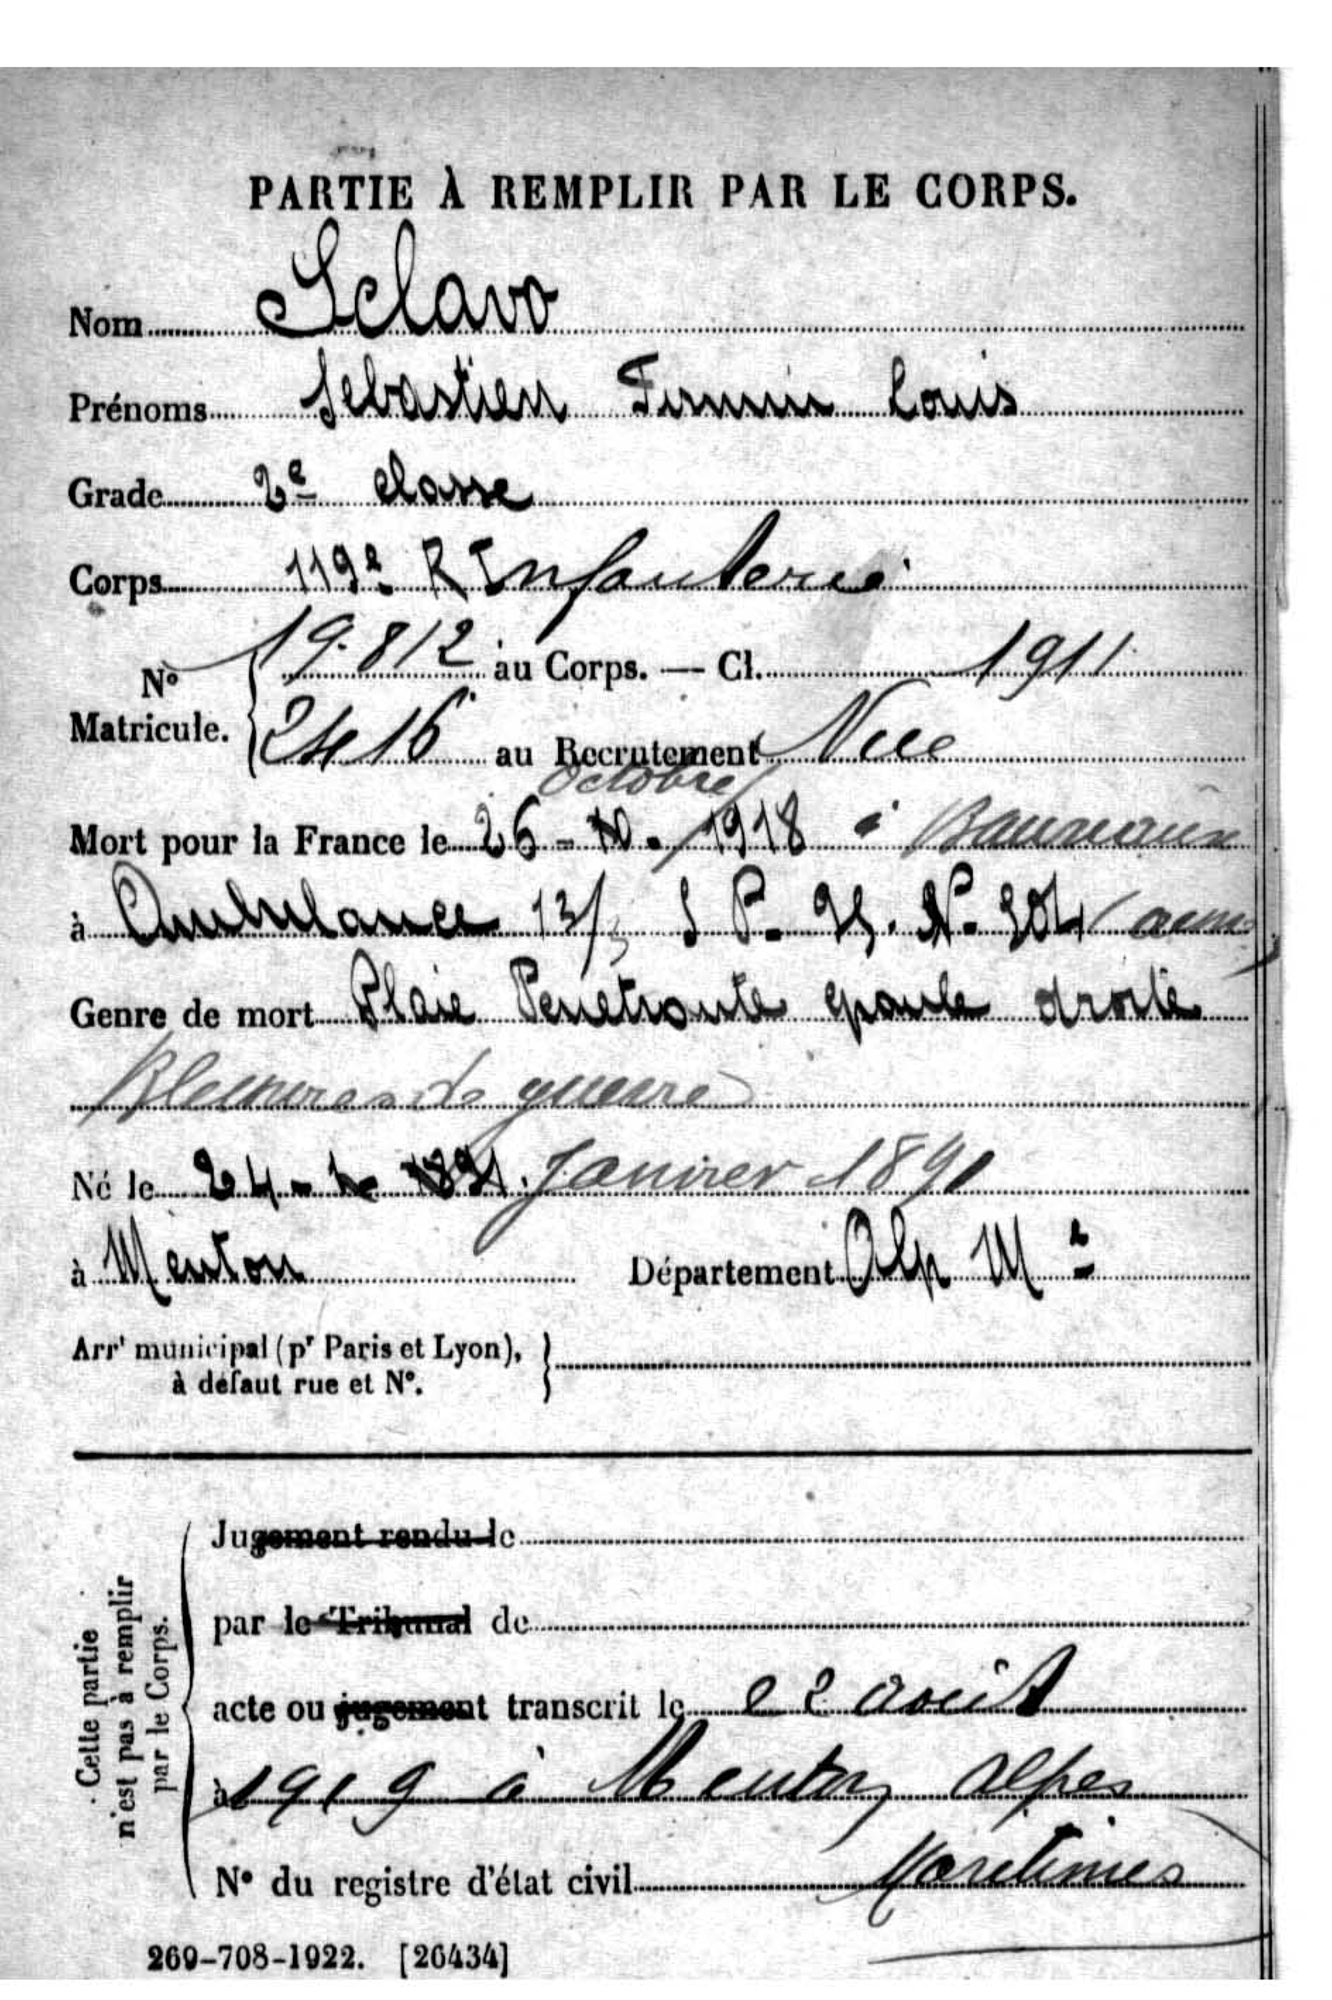 PARTIE À REMPLIR PAR LE CORPS.
Nom Sclavo
Prénoms Sebastien Firmin Louis
Grade 2e classe
Corps 119e R Infanterie
19.812 au Corps. — Cl. 1911
N°
Matricule.
2416 au Recrutement Nice
octobre
Mort pour la France le 26 - 10 - 1918 à
à Ambulance 13/ S P. N° 204
Genre de mort Plaie Penetrante epaule droite
Blessures de guerre
Né le 24 - 1 - 1891. Janvier 1891
à Menton Département Alp Mes
Arrt municipal (pr Paris et Lyon),
à défaut rue et N°.
Cette partie
n'est pas à remplir
par le Corps.
Jugement rendu le
par le Tribunal de
acte ou jugement transcrit le 22 août
à 1919 à Menton Alpes
Maritimes
N° du registre d'état civil
269-708-1922. [26434]